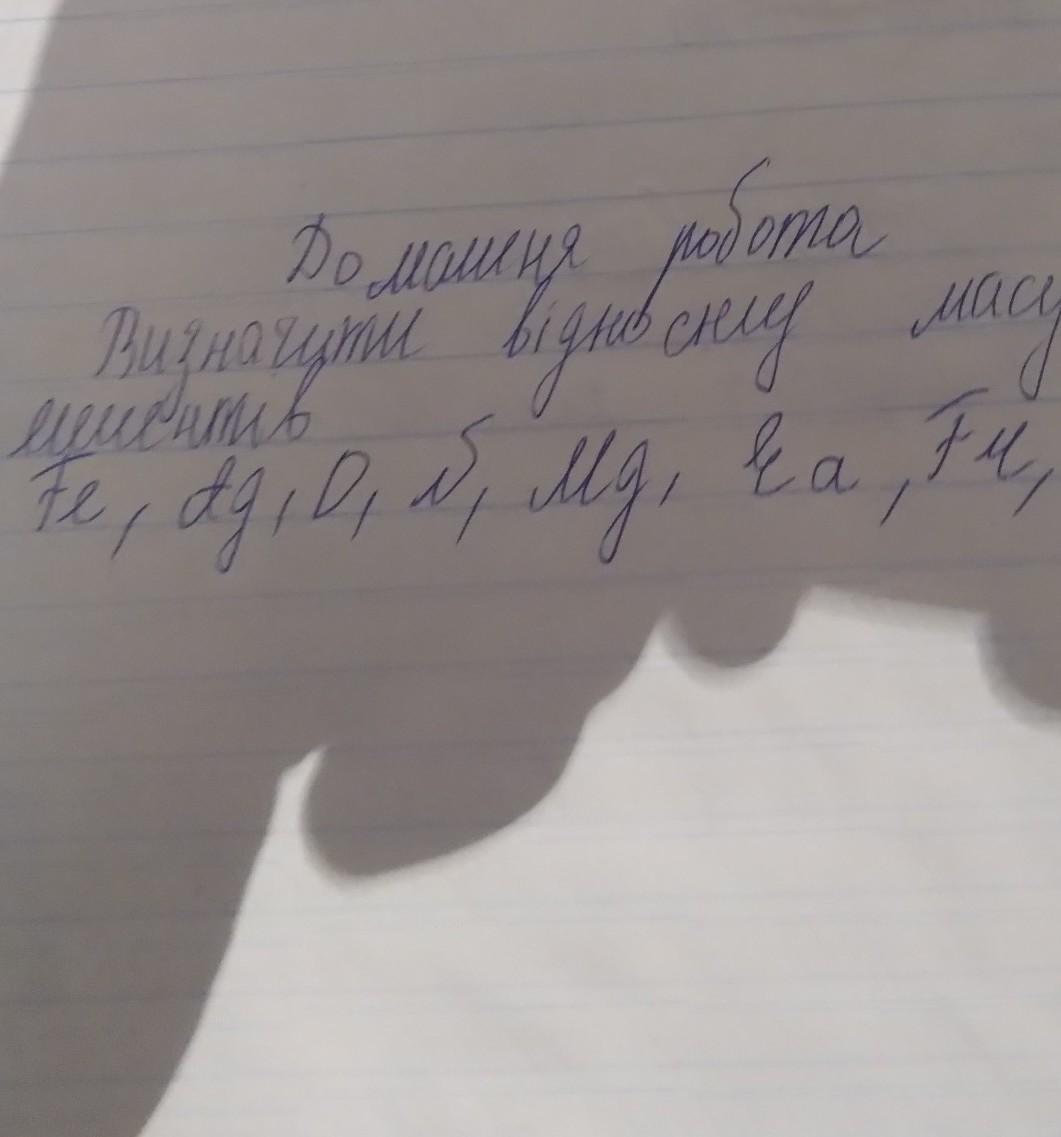 Домашня робота
Визначити відносну масу
елементів
Fe, Ag, O, N, Mg, Ca, Fu,